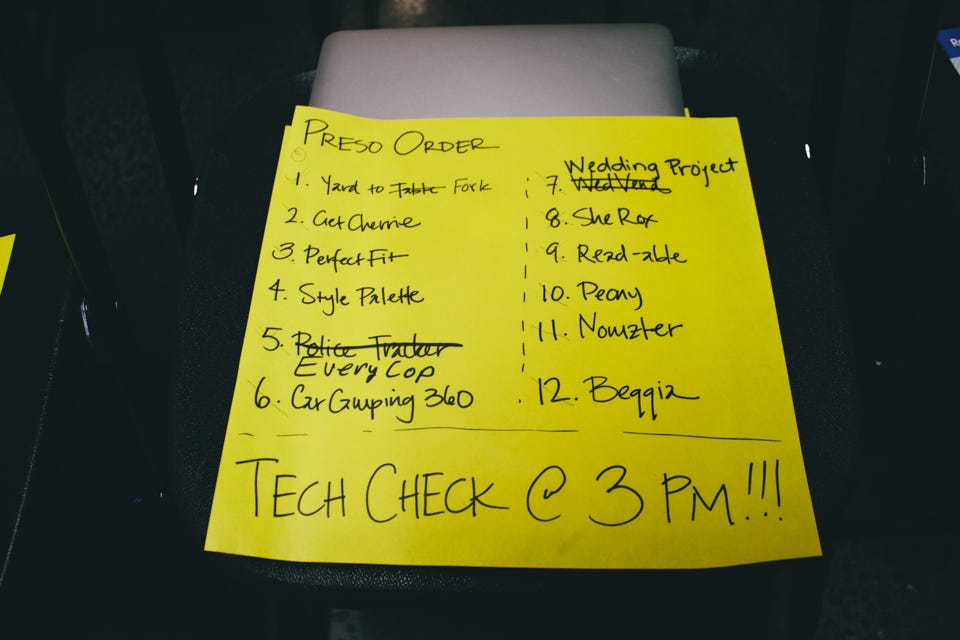 PRESO ORDER
1. Yard to Table Fork
2. GetCherrie
3. PerfectFit
4. Style Palette
5. Police Tracker
Every Cop
6. Car Gumping 360
Wedding Project
7. WedVend
8. SheRox
9. Read-able
10. Peony
11. Nomzter
12. Beqqia
TECH CHECK @ 3 PM!!!